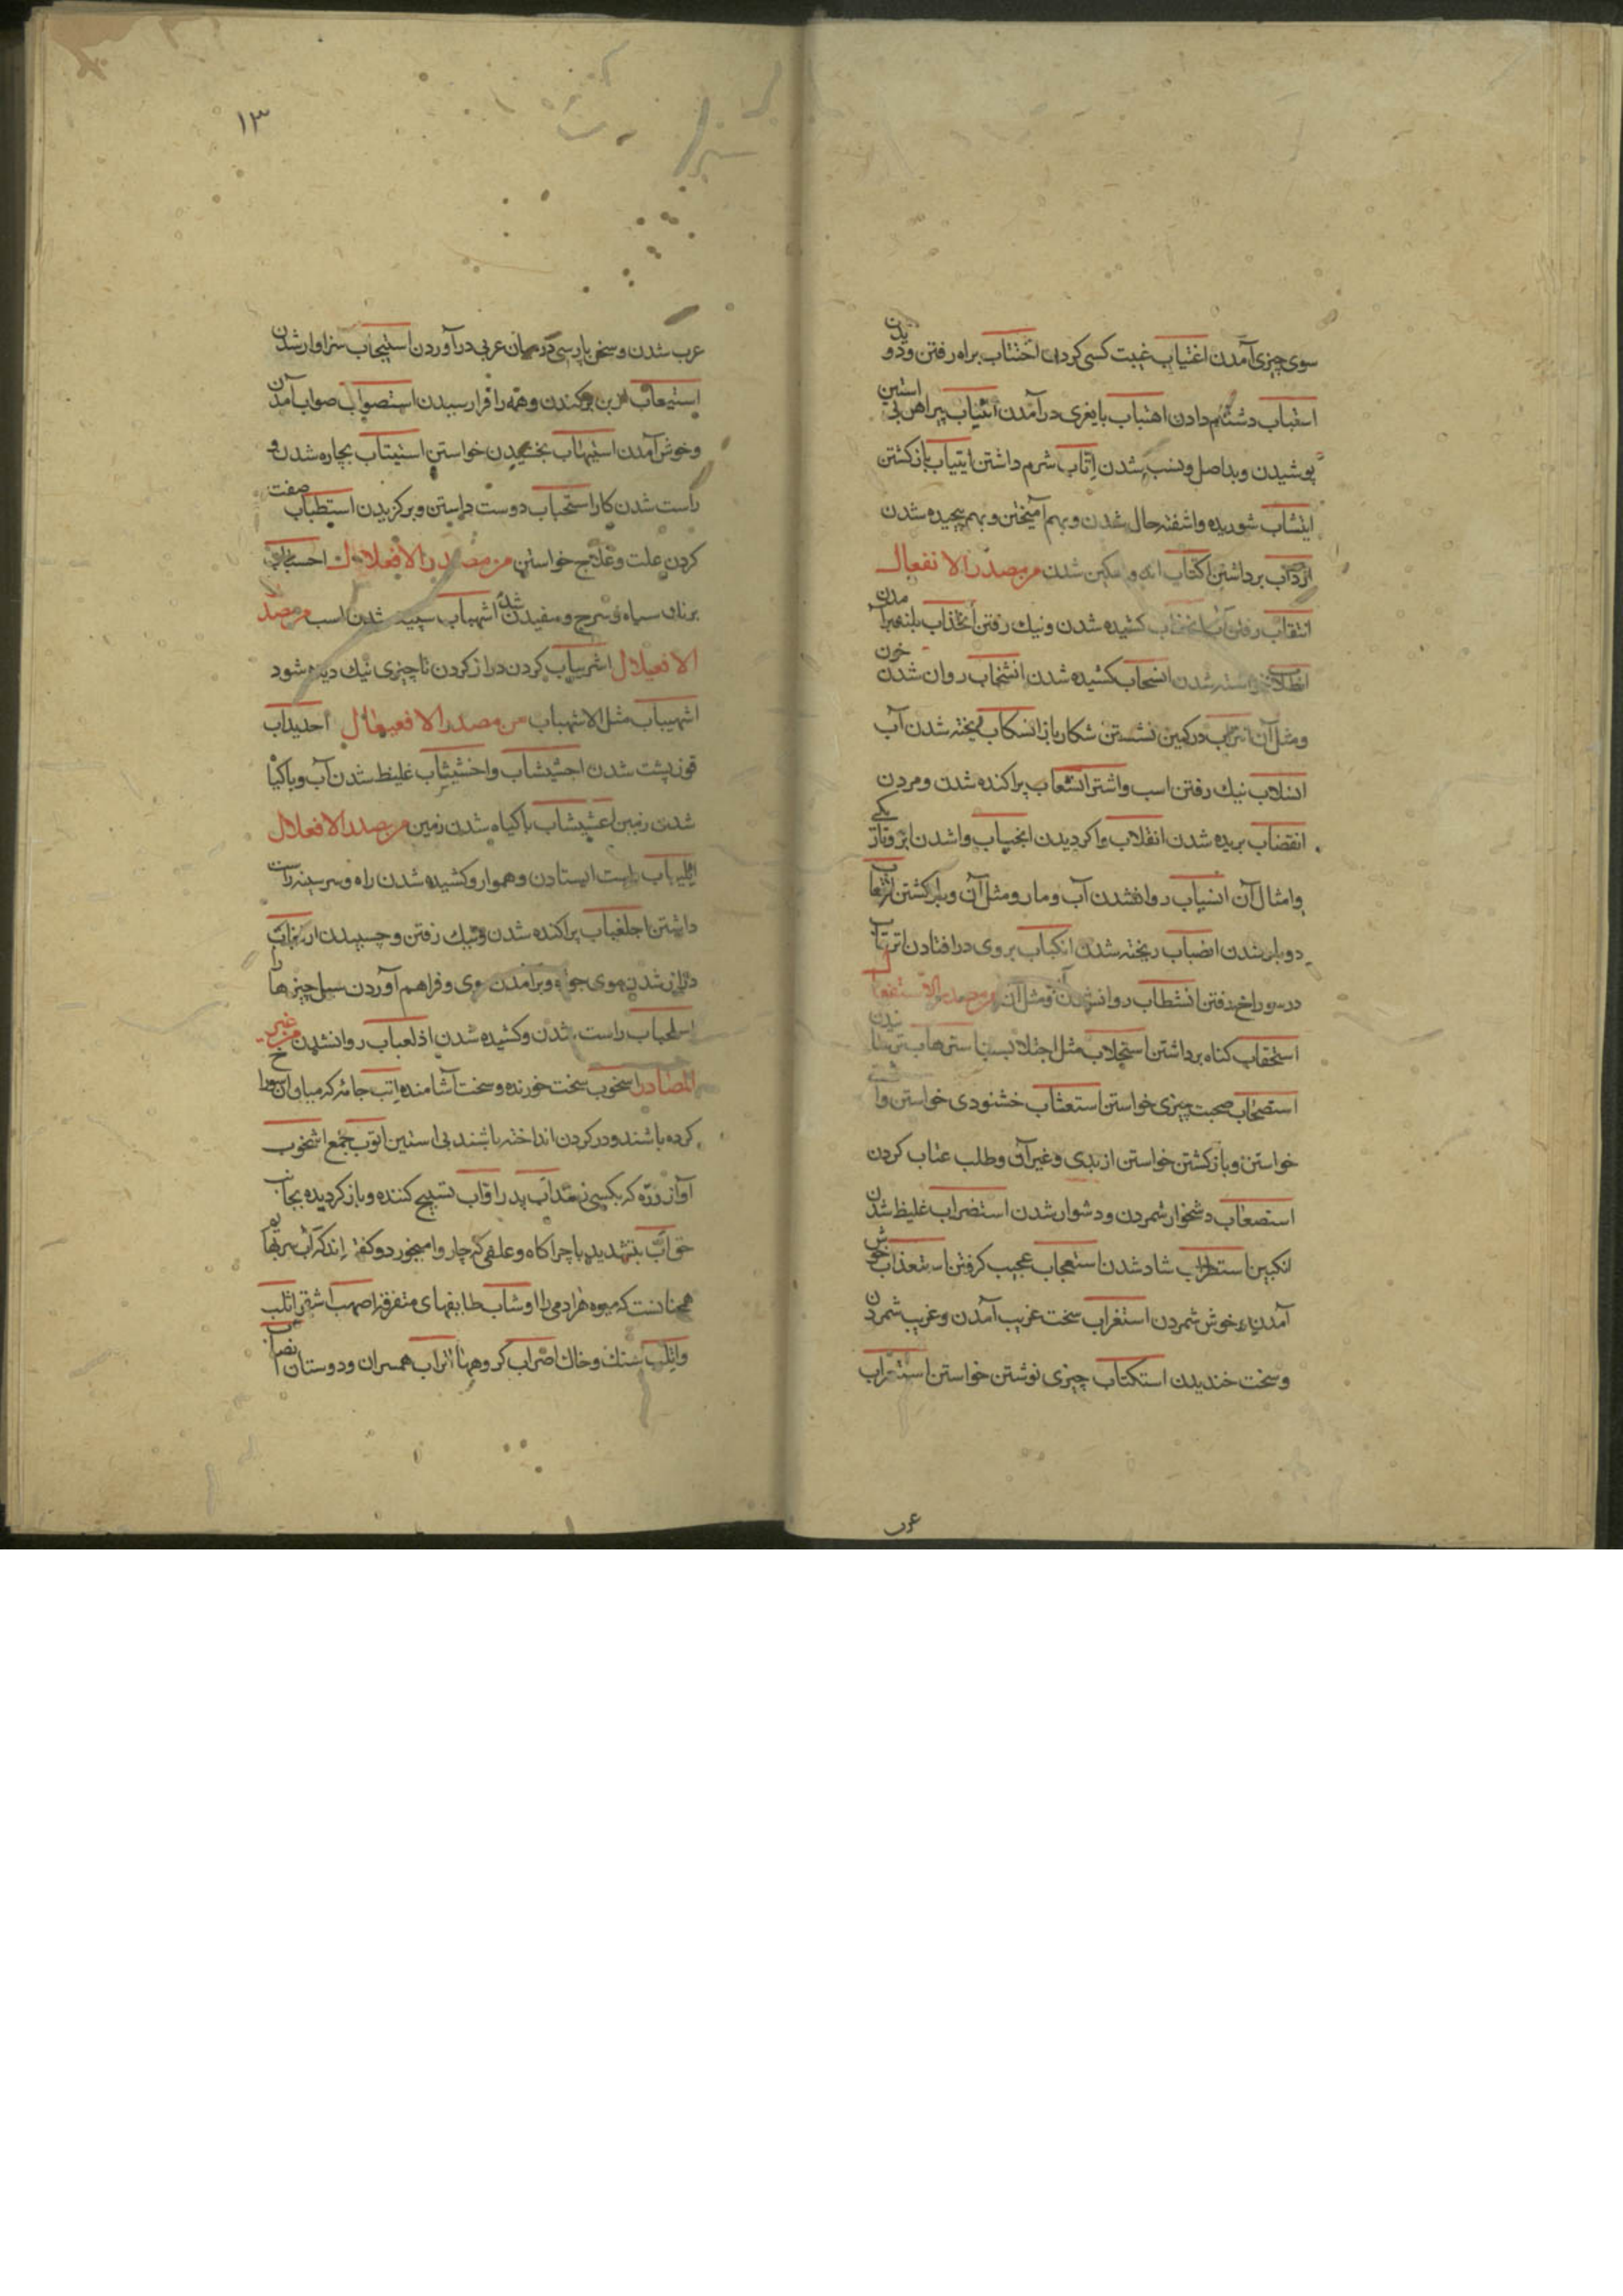 سوی چیزی آمدن اغتیاب غیبت کسی کردن اختتاب براه رفتن و دویدن
اسغباب دشنام دادن اهتباب بایغری درآمدن اتیاب پیراهن بی استین
پوشیدن و بداصل و نسب شدن اتاب شرم داشتن ایتیاب بازکشتن
ایتشاب شوریده و اشفته حال شدن و بهم آمیختن و بهم پیچیده شدن
ازداب برداشتن اکتاب اندوهکین شدن من مصدر الانفعال
انتقاب رفتن آب کشیده شدن و نیك رفتن انخذاب
شدن انسحاب کشیده شدن انشخاب روان شدن خون
و مثل آن در کمین نشستن شکار باز انسکاب ریخته شدن آب
انسلاب نیك رفتن اسب و اشتر انشعاب پراکنده شدن و مردن
انقضاب بریده شدن انقلاب واکردیدن انجیاب واشدن ابر و تاریکی
و امثال آن انسیاب روان شدن آب و مار و مثل آن و برکشتن انزعاب
دوباره شدن انصباب ریخته شدن انکباب بروی درافتادن
در سوراخ رفتن انشطاب روان شدن آب و مثل آن من مصدر الاستفعال
استحقاب کناه برداشتن استجلاب مثل اجتلاب استرهاب ترسانیدن
استصحاب صحبت چیزی خواستن استعتاب خشنودی خواستن و
خواستن و بازکشتن خواستن از بدی و غیر آن و طلب عتاب کردن
استصعاب دشخوار شمردن و دشوار شدن استضراب غلیظ شدن
انکبین استطراب شاد شدن استعجاب عجیب کرفتن استعذاب خوش
آمدن و خوش شمردن استغراب سخت غریب آمدن و غریب شمردن
و سخت خندیدن استکتاب چیزی نوشتن خواستن استعراب
عرب
۱۳
عرب شدن و سخن پارسی در میان عربی درآوردن استیجاب سزاوار شدن
استیعاب از بن برکندن و همه را فرا رسیدن استصواب صواب آمدن
و خوش آمدن استیهاب بخشیدن خواستن استیتاب بچاره شدن و
راست شدن کار استحباب دوست داستن و برکزیدن استطباب صفت
کردن علت و علاج خواستن من مصدر الافعلال احسباب
سیاه و سرخ و سفید شدن اشهباب سپید شدن اسب من مصدر
الافعیلال اشریباب کردن دراز کردن تا چیزی نیك دیده شود
اشهیباب مثل الاشهباب من مصدر الافعیعال احدیداب
قوز پشت شدن اجشیشاب و اخشیشاب غلیظ شدن آب و باکیاه
شدن زمین اعشیشاب با کیاه شدن زمین من مصدر الافعلال
اتلیباب راست ایستادن و هموار و کشیده شدن راه و سر سینه راست
داشتن اجلعباب پراکنده شدن و نیك رفتن و چسبیدن ازلغباب
دراز شدن موی جوان و برآمدن موی و فراهم آوردن سیل چیزها را
اسلحباب راست شدن و کشیده شدن اذلعباب روان شدن من غیر
المصادر اسحوب سخت خورنده و سخت آشامنده اتب جامه که میان آن سوراخ
کرده باشند و در کردن انداخته باشند بی استین اتوب جمع اشخوب
آواز دره که بکسی زنند اب پدر اواب تسبیح کننده و باز کردیده بجانب
حق اب بتشدید با چراکاه و علفی که چاروا میخورد و کفته اند که اب مر بهایم را
همچنانست که میوه مر آدمی را اوشاب طایفهای متفرقه اصهب اشقر اثلب
و اثلب سنك و خاك اضراب کروهها اتراب همسران و دوستان انصاب